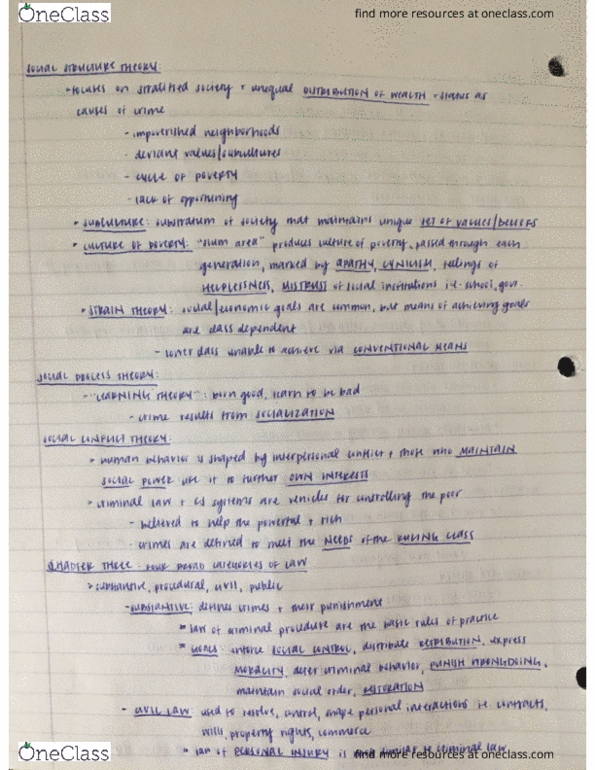 OneClass
find more resources at oneclass.com
SOCIAL STRUCTURE THEORY:
- focuses on stratified society + unequal DISTRIBUTION OF WEALTH + status as
causes of crime
- impoverished neighborhoods
- deviant values/subcultures
- cycle of poverty
- lack of opportunity
• SUBCULTURE: substratum of society that maintains unique SET OF VALUES/BELIEFS
• CULTURE OF POVERTY: "slum area" produces culture of poverty, passed through each
generation, marked by APATHY, CYNICISM, feelings of
HELPLESSNESS, MISTRUST of social institutions i.e. school, gov.
• STRAIN THEORY: social/economic goals are common, but means of achieving goals
are class dependent
- lower class unable to achieve via CONVENTIONAL MEANS
SOCIAL PROCESS THEORY:
- "LEARNING THEORY": born good, learn to be bad
- crime results from SOCIALIZATION
SOCIAL CONFLICT THEORY:
• human behavior is shaped by interpersonal conflict + those who MAINTAIN
SOCIAL POWER use it to further OWN INTERESTS
• criminal law + CJ systems are vehicles for controlling the poor
- believed to help the powerful + rich
- crimes are defined to meet the NEEDS of the RULING CLASS
CHAPTER THREE: FOUR BROAD CATEGORIES OF LAW
• substantive, procedural, civil, public
- SUBSTANTIVE: defines crimes + their punishment
* law of criminal procedure are the basic rules of practice
* GOALS: enforce SOCIAL CONTROL, distribute RETRIBUTION, express
MORALITY, deter criminal behavior, PUNISH WRONGDOING,
maintain social order, RESTORATION
- CIVIL LAW: used to resolve, control, shape personal interactions i.e. contracts,
wills, property rights, commerce
* law of PERSONAL INJURY is similar to criminal law
OneClass
find more resources at oneclass.com